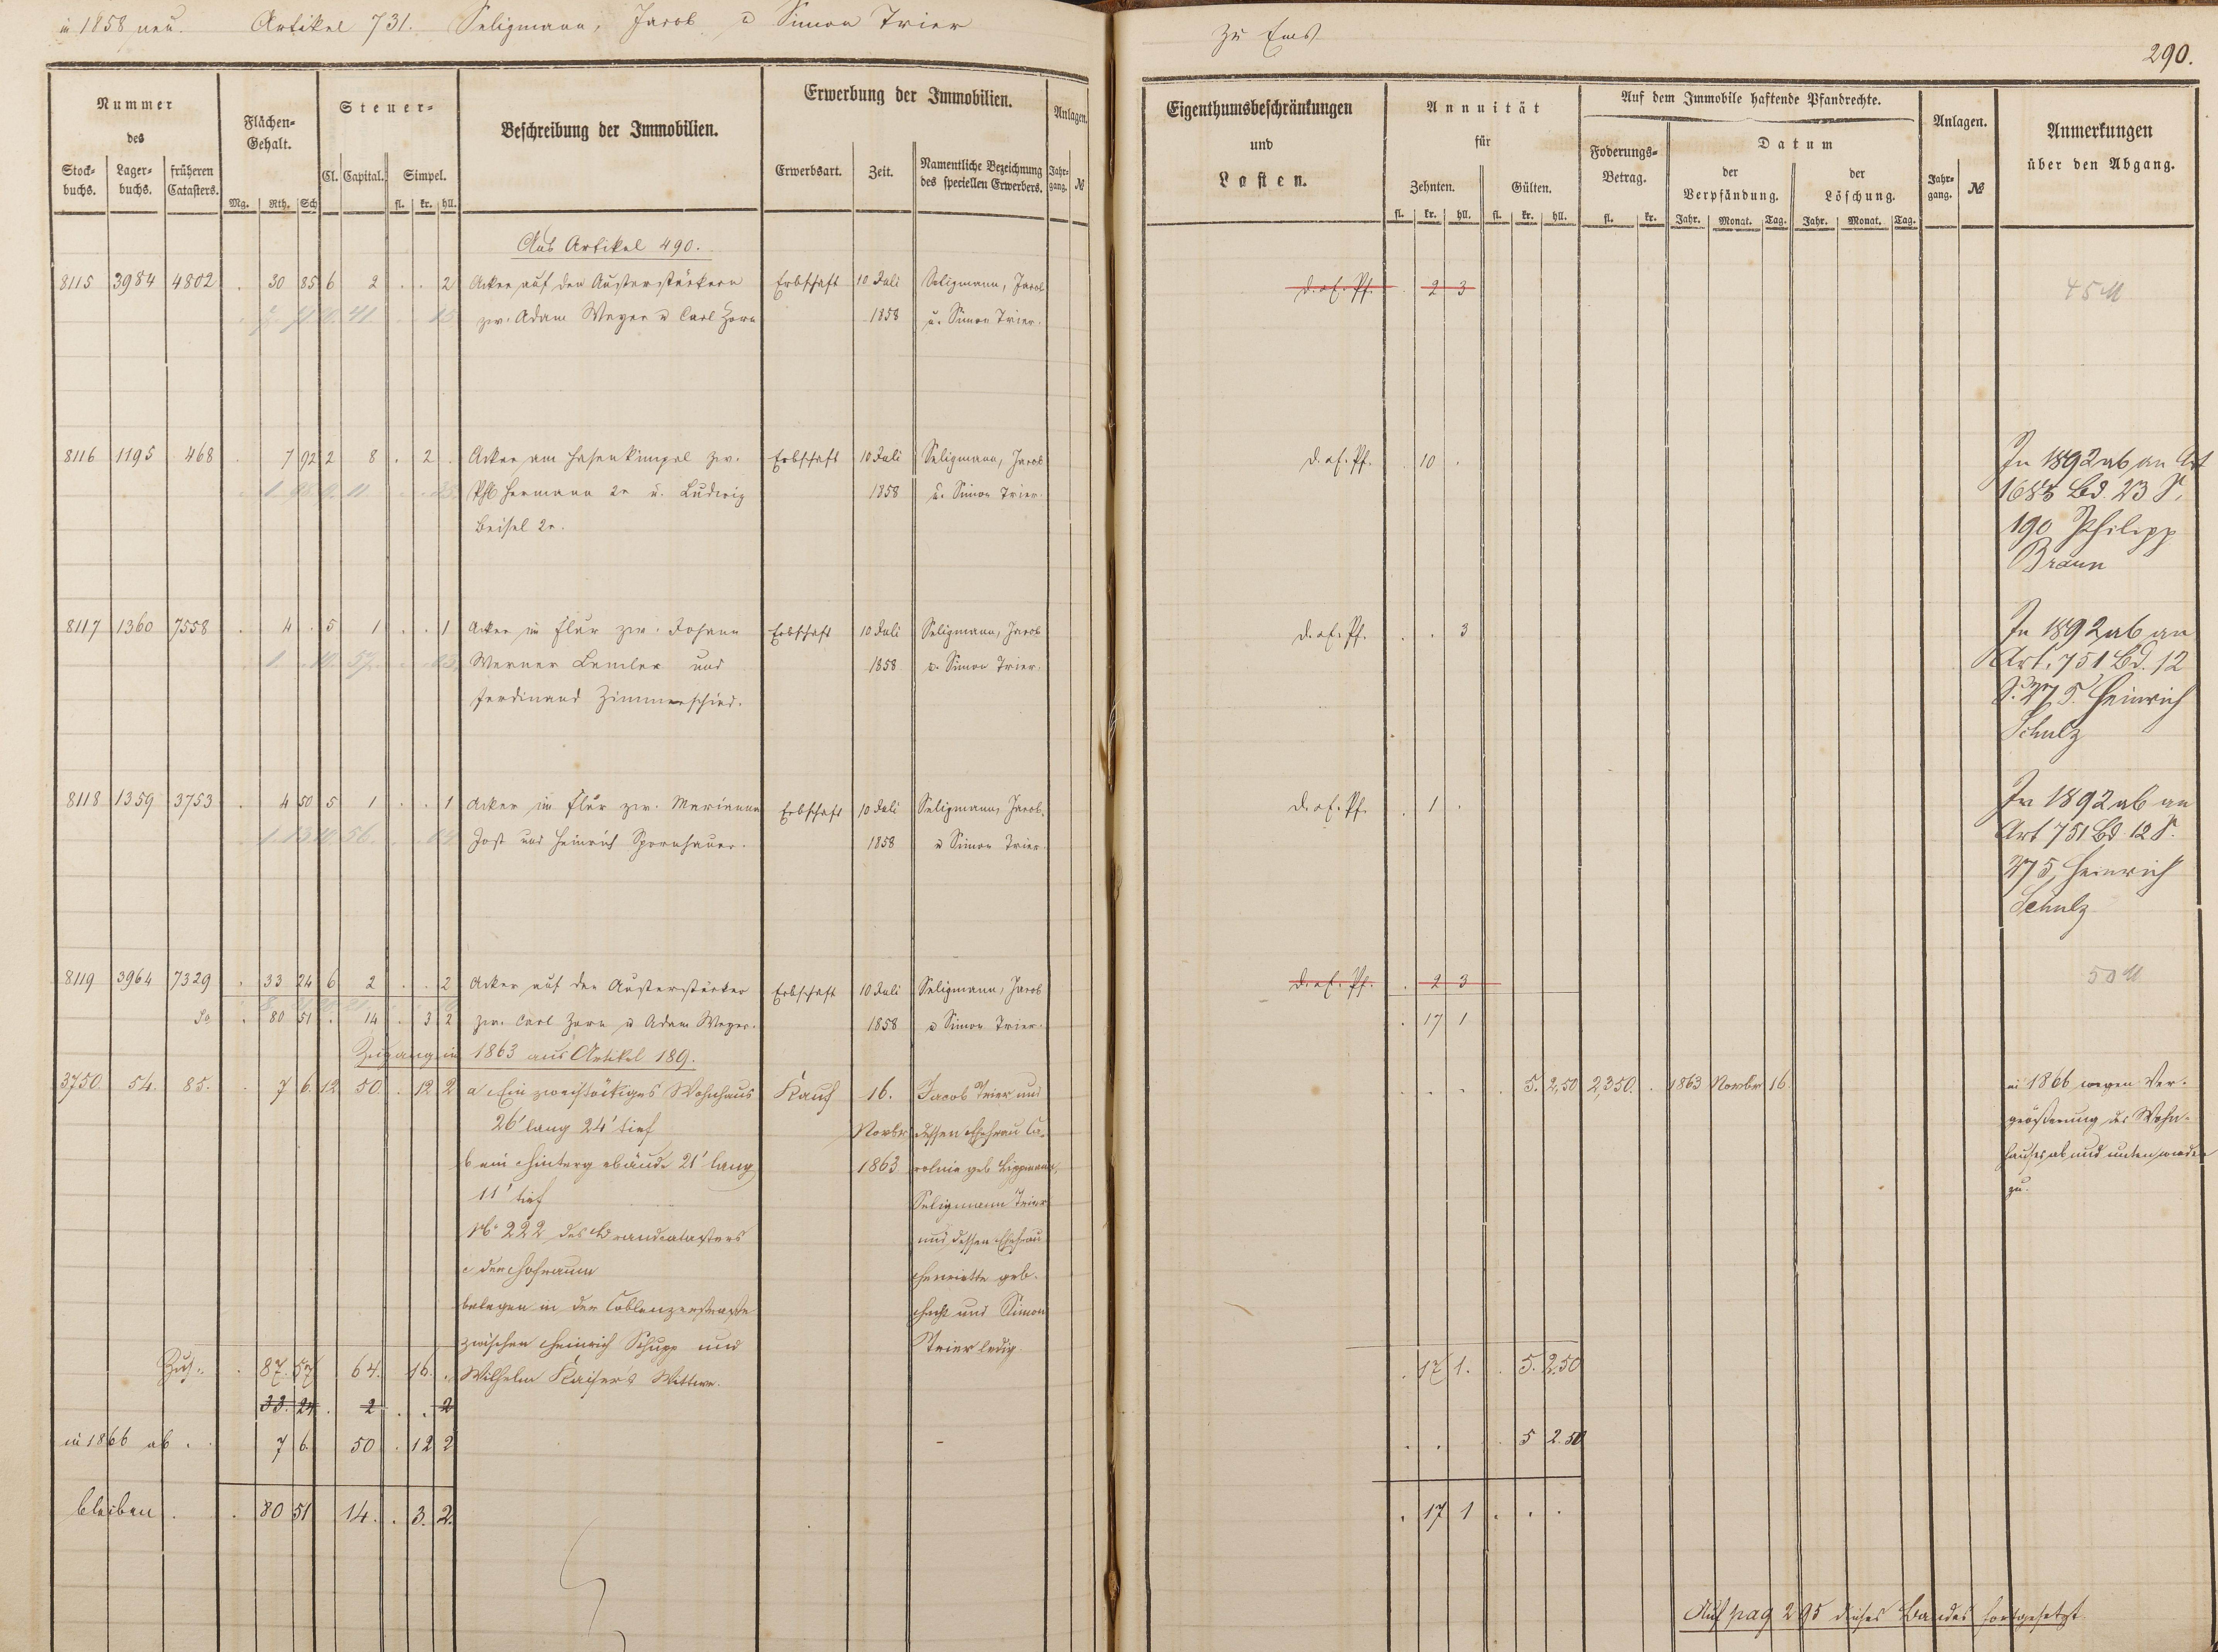 in 1858 neu. Artikel 731. Seligmann, Jacob u Simon Trier
zu Ems
290.
Nummer des
Stock-buchs. Lager-buchs. früheren Catasters.
Flächen-Gehalt.
Mg. Rth. Sch
Steuer-
Cl. Capital. Simpel.
fl. kr. hll.
Beschreibung der Immobilien.
Erwerbung der Immobilien.
Erwerbsart. Zeit. Namentliche Bezeichnung des speciellen Erwerbers.
Anlagen.
Jahr-gang. №
Eigenthumsbeschränkungen
und
Lasten.
Annuität
für
Zehnten. Gülten.
fl. kr. hll. fl. kr. hll.
Auf dem Immobile haftende Pfandrechte.
Foderungs-Betrag.
fl. kr.
Datum
der Verpfändung. der Löschung.
Jahr. Monat. Tag. Jahr. Monat. Tag.
Anlagen.
Jahr-gang. №
Anmerkungen
über den Abgang.
Aus Artikel 490.
8115 3984 4802 . 30 85 6 2 . . 2 Acker auf den Austerstückern Erbschaft 10 Juli Seligmann, Jacob d. a. f. Pf. . 2 3
zw. Adam Weyer u Carl Zorn 1858 u. Simon Trier.
8116 1195 468 . 7 92 2 8 . 2 . Acker am Hasenkümpel zw. Erbschaft 10 Juli Seligmann, Jacob d. a. f. Pf. . 10 . In 1892 ab an Art
Phl Hermann 2r u. Ludwig 1858 u. Simon Trier. 1683 Bd. 23 S.
Beisel 2r. 190 Philipp
Braun
8117 1360 7558 . 4 . 5 1 . . 1 Acker im Flür zw. Johann Erbschaft 10 Juli Seligmann, Jacob d. a. f. Pf. . . 3 In 1892 ab an
Werner Lemler und 1858 u. Simon Trier. Art. 751 Bd. 12
Ferdinand Zimmerschied. S. 275. Heinrich
Schulz
8118 1359 3753 . 4 50 5 1 . . 1 Acker im Flür zw. Marianna Erbschaft 10 Juli Seligmann, Jacob. d. a. f. Pf. . 1 . In 1892 ab an
Jost und Heinrich Spornhauer. 1858 u Simon Trier. Art 751 Bd 12 S.
275, Heinrich
Schulz
8119 3964 7329 . 33 24 6 2 . . 2 Acker auf den Austerstücker Erbschaft 10 Juli Seligmann, Jacob d. a. f. Pf. . 2 3
Sa . 80 51 . 14 . 3 2 zw. Carl Zorn u Adam Weyer. 1858 u Simon Trier. . 17 1
Zugang in 1863 aus Artikel 189.
3750. 54. 85. . 7 6. 12 50. . 12 2 a Ein zweistöckiges Wohnhaus Kauf 16. Jacob Trier und 5. 2,50 2,350. . 1863 Novbr 16. in 1866 wegen Ver-
26' lang 24' tief Novbr dessen Ehefrau Ca- größerung des Wohn-
b ein Hintergebäude 21' lang 1863 rolnia geb Lippmann, hauses ab und unten wieder
11' tief Seligmann Trier zu.
№ 222 des Brandcatasters und dessen Ehefrau
c der Hofraum Henriette geb.
belegen in der Coblenzerstraße Hecht und Simon
zwischen Heinrich Schupp und Trier ledig.
Zus. . 87. 57 64. 16. . Wilhelm Kaiser's Wittwe. . 17 1. . 5. 2.50
33. 24 . 2 . . 2
in 1866 ab . . 7 6. 50 . 12 2 . . . 5 2.50
bleiben . . 80 51 14. . 3. 2. . 17 1 . . .
Auf pag 295 dieses Bandes fortgesetzt